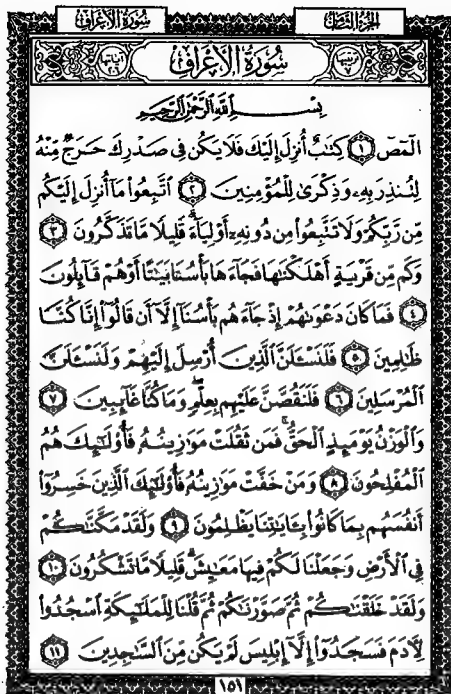 سُورَةُ الأَعْرَافِ
الجُزْءُ الثَّامِنُ
سُورَةُ الأَعْرَافِ
بِسْمِ اللَّهِ الرَّحْمَٰنِ الرَّحِيمِ
الٓمٓصٓ ١ كِتَٰبٌ أُنزِلَ إِلَيْكَ فَلَا يَكُن فِي صَدْرِكَ حَرَجٌ مِّنْهُ
لِتُنذِرَ بِهِۦ وَذِكْرَىٰ لِلْمُؤْمِنِينَ ٢ ٱتَّبِعُوا۟ مَآ أُنزِلَ إِلَيْكُم
مِّن رَّبِّكُمْ وَلَا تَتَّبِعُوا۟ مِن دُونِهِۦٓ أَوْلِيَآءَ ۗ قَلِيلًا مَّا تَذَكَّرُونَ ٣
وَكَم مِّن قَرْيَةٍ أَهْلَكْنَٰهَا فَجَآءَهَا بَأْسُنَا بَيَٰتًا أَوْ هُمْ قَآئِلُونَ
٤ فَمَا كَانَ دَعْوَىٰهُمْ إِذْ جَآءَهُم بَأْسُنَآ إِلَّآ أَن قَالُوٓا۟ إِنَّا كُنَّا
ظَٰلِمِينَ ٥ فَلَنَسْـَٔلَنَّ ٱلَّذِينَ أُرْسِلَ إِلَيْهِمْ وَلَنَسْـَٔلَنَّ
ٱلْمُرْسَلِينَ ٦ فَلَنَقُصَّنَّ عَلَيْهِم بِعِلْمٍ ۖ وَمَا كُنَّا غَآئِبِينَ ٧
وَٱلْوَزْنُ يَوْمَئِذٍ ٱلْحَقُّ ۚ فَمَن ثَقُلَتْ مَوَٰزِينُهُۥ فَأُو۟لَٰٓئِكَ هُمُ
ٱلْمُفْلِحُونَ ٨ وَمَنْ خَفَّتْ مَوَٰزِينُهُۥ فَأُو۟لَٰٓئِكَ ٱلَّذِينَ خَسِرُوٓا۟
أَنفُسَهُم بِمَا كَانُوا۟ بِـَٔايَٰتِنَا يَظْلِمُونَ ٩ وَلَقَدْ مَكَّنَّٰكُمْ
فِي ٱلْأَرْضِ وَجَعَلْنَا لَكُمْ فِيهَا مَعَٰيِشَ ۗ قَلِيلًا مَّا تَشْكُرُونَ ١٠
وَلَقَدْ خَلَقْنَٰكُمْ ثُمَّ صَوَّرْنَٰكُمْ ثُمَّ قُلْنَا لِلْمَلَٰٓئِكَةِ ٱسْجُدُوا۟
لِـَٔادَمَ فَسَجَدُوٓا۟ إِلَّآ إِبْلِيسَ لَمْ يَكُن مِّنَ ٱلسَّٰجِدِينَ ١١
١٥١